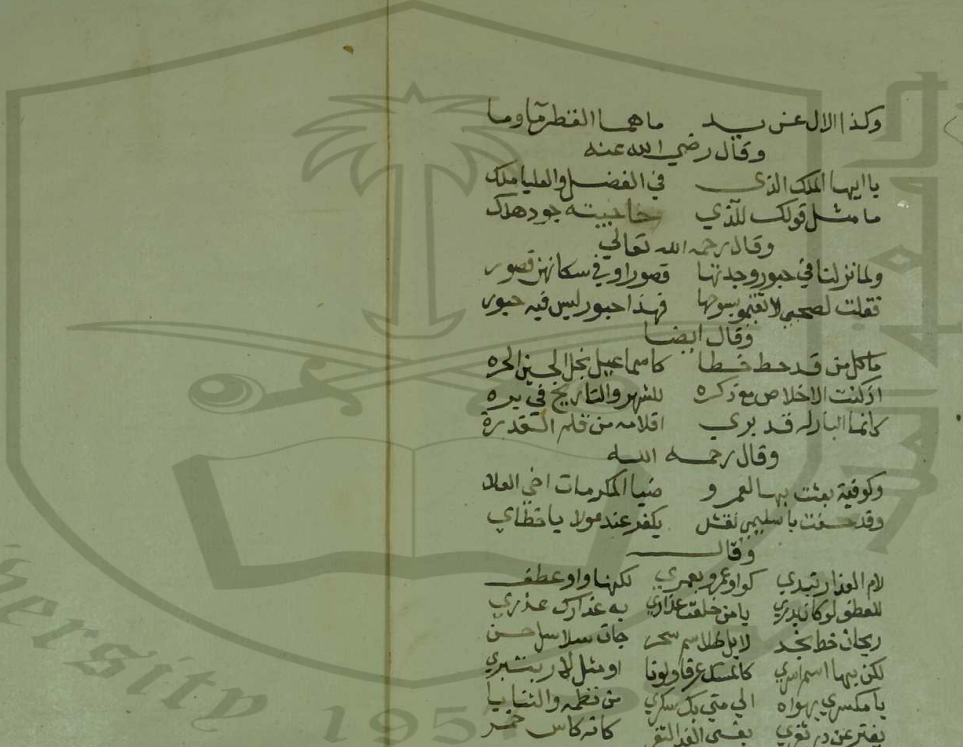 وكذا الال عن يد ما هما القطر وما
وقال رضي الله عنه
يا ايها الملك الذي في الفضل والعليا ملك
ما مثل قولك للذي حاجيته جود هلك
وقال رحمه الله تعالي
ولما نزلنا في حبور وجدتها قصورا وفي سكانهن قصور
فقلت لصحبي لا تقيموا بسوحها فهذا حبور ليس فيه حبور
وقال ايضا
ما كل من قد خط خطا كاسماعيل نجل الحره
اذ كنت الاخلاص مع ذكره للشهر والتاريخ في يره
كانما البار له قد بري اقلامه من قلم القدرة
وقال رحمه الله
وكوفية بعثت بها لعمرو ضيا المكرمات اخي العلا
وقد بنقش يكفر عند مولا يا
وقال
لام العذار تبدي كواو عمرو بعمري لكنها واو عطف
للعطف لو كان يدري يا من خلعت عذاري به عذارك عذري
ريحان خط بخد لا بل طلاسم سحر جات سلاسل حسن
لكن بها كالمسك عرفا ولونا او مثل
يا مسكري بهواه الي متي بك سكري من نظمه والثنايا
يفتر عن در ثغر كانه كاس خمر
University 195